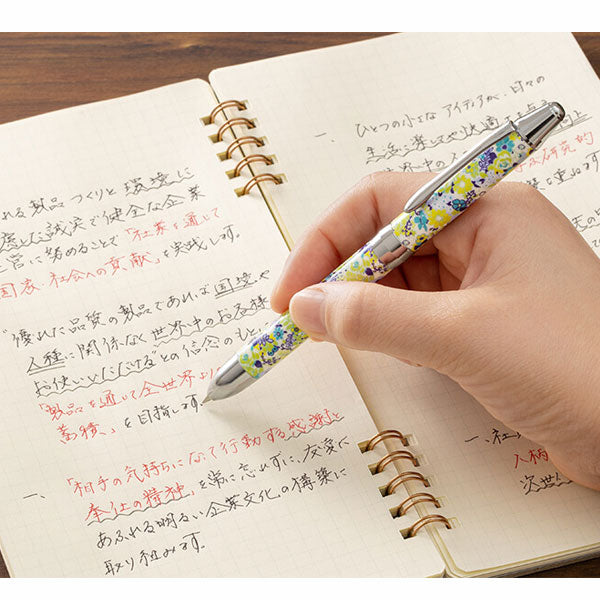 れる製品づくりと環境に
慮した誠実で健全な企業
営に努めることで「社業を通じて
国家、社会への貢献」を実践します。
"優れた品質の製品であれば国境や
人種に関係なく世界中のお客様
お使いいただける"との信念のもと
「製品を通じて全世界
蓄積、」を目指します
一、「相手の気持ちになって行動する感謝と
奉仕の精神」を常に忘れずに、友愛に
あふれる明るい企業文化、の構築に
取り組みます。
一、ひとつの小さなアイディアが、日々の
生活に楽しさや快適
世界中の
研究的
一、社
人柄
次世